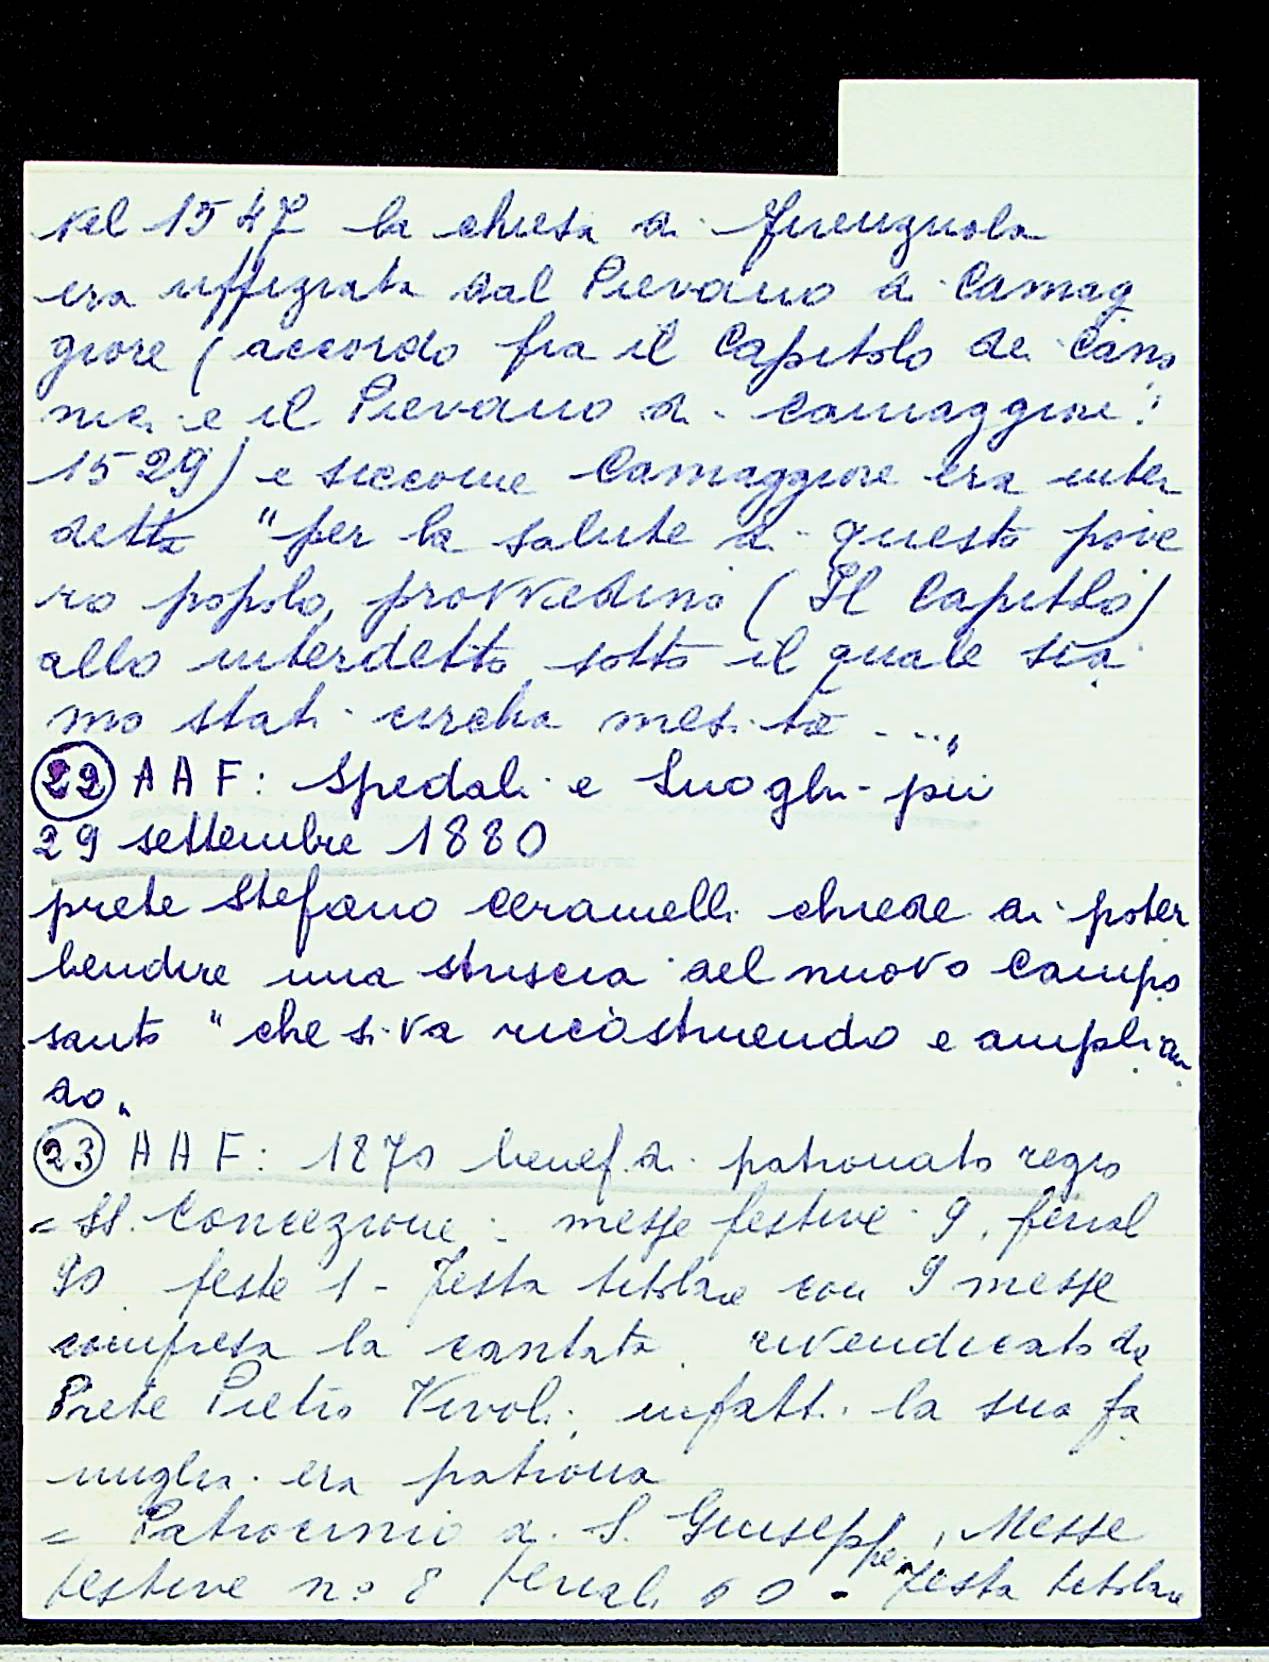 Nel 1547 la chiesa di Firenzuola
era uffiziata dal Pievano di Camag
giore (accordo fra il Capitolo dei Cano
nici e il Pievano di Camaggiore:
1529) e siccome Camaggiore era inter
detta "per la salute di questo pove
ro popolo, provvedino (Il Capitolo)
allo interdetto sotto il quale sia
mo stati circha mesi tre ..."
22 AAF: Spedali e Luoghi pii
29 settembre 1880
prete Stefano Ceramelli chiede di poter
bendire una striscia del nuovo Campo
santo "che si va ricostruendo e amplian
do"
23 AAF: 1870 benef. di patronato regio
= SS. Concezione: messe festive 9, feriali
90 feste 1 - Festa titolare con 9 messe
compresa la cantata. rivendicato da
Prete Pietro Vivoli; infatti la sua fa
miglia era patrona
= Patrocinio di S. Giuseppe, Messe
festive n° 8 feriali 60 - Festa titolare